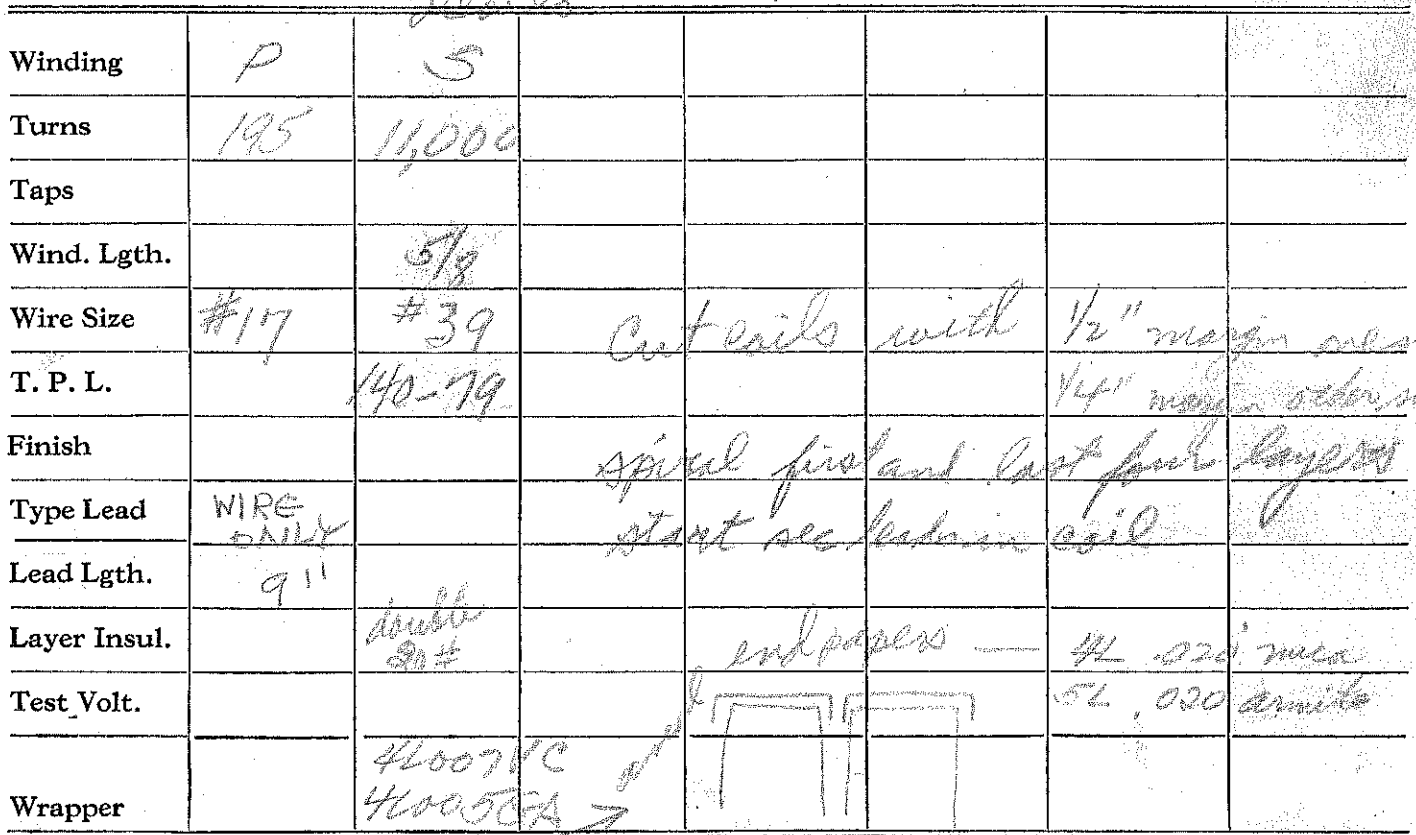 Winding P S
Turns 195 11,000
Taps
Wind. Lgth. 5/8
Wire Size #17 #39 Cut coils with 1/2" margin
T. P. L. 140-79 1/4" margin
Finish spiral first and last four layers
Type Lead WIRE ONLY start sec coil
Lead Lgth. 9"
Layer Insul. double 20# end papers — 4L .020 mica
Test Volt. 5L .020
Wrapper 4L007VC